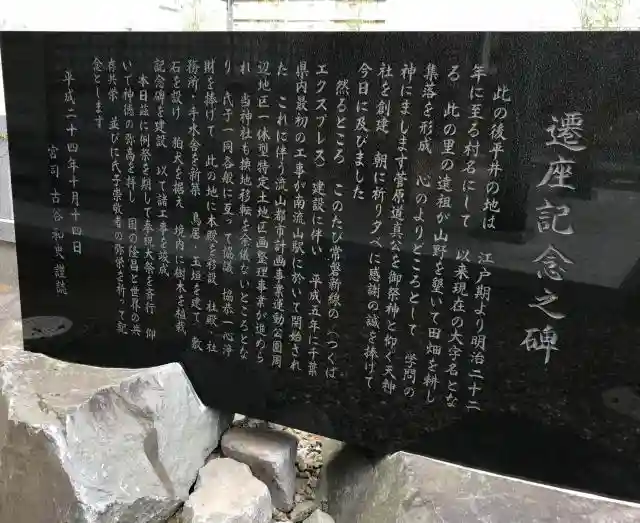 遷座記念之碑
此の後平井の地は 江戸期より明治二十二
年に至る村名にして 以来現在の大字名とな
る 此の里の遠祖が山野を墾いて田畑を耕し
集落を形成 心のよりどころとして 学問の
神にまします菅原道真公を御祭神と仰ぐ天神
社を創建 朝に祈り夕べに感謝の誠を捧げて
今日に及びました
然るところ このたび常磐新線の(つくば
エクスプレス)建設に伴い 平成五年に千葉
県内最初の工事が南流山駅に於いて開始され
た これに伴う流山都市計画事業運動公園周
辺地区一体型特定土地区画整理事業が進めら
れ 当神社も換地移転を余儀ないところとな
り 氏子一同各般に亙って協議 協恭一心浄
財を捧げて 此の地に本殿を移設 社殿・社
務所・手水舎を新築 鳥居・玉垣を建て 敷
石を設け 狛犬を据え 境内に樹木を植栽
記念碑を建設 以て諸工事を竣成
本日茲に例祭を期して奉祝大祭を斉行 仰
いで神徳の弥高を拝し 国の隆昌と世界の共
存共栄 並びに氏子崇敬者の弥栄を祈って記
念とします
平成二十四年十月十四日
宮司 古谷和史 謹誌